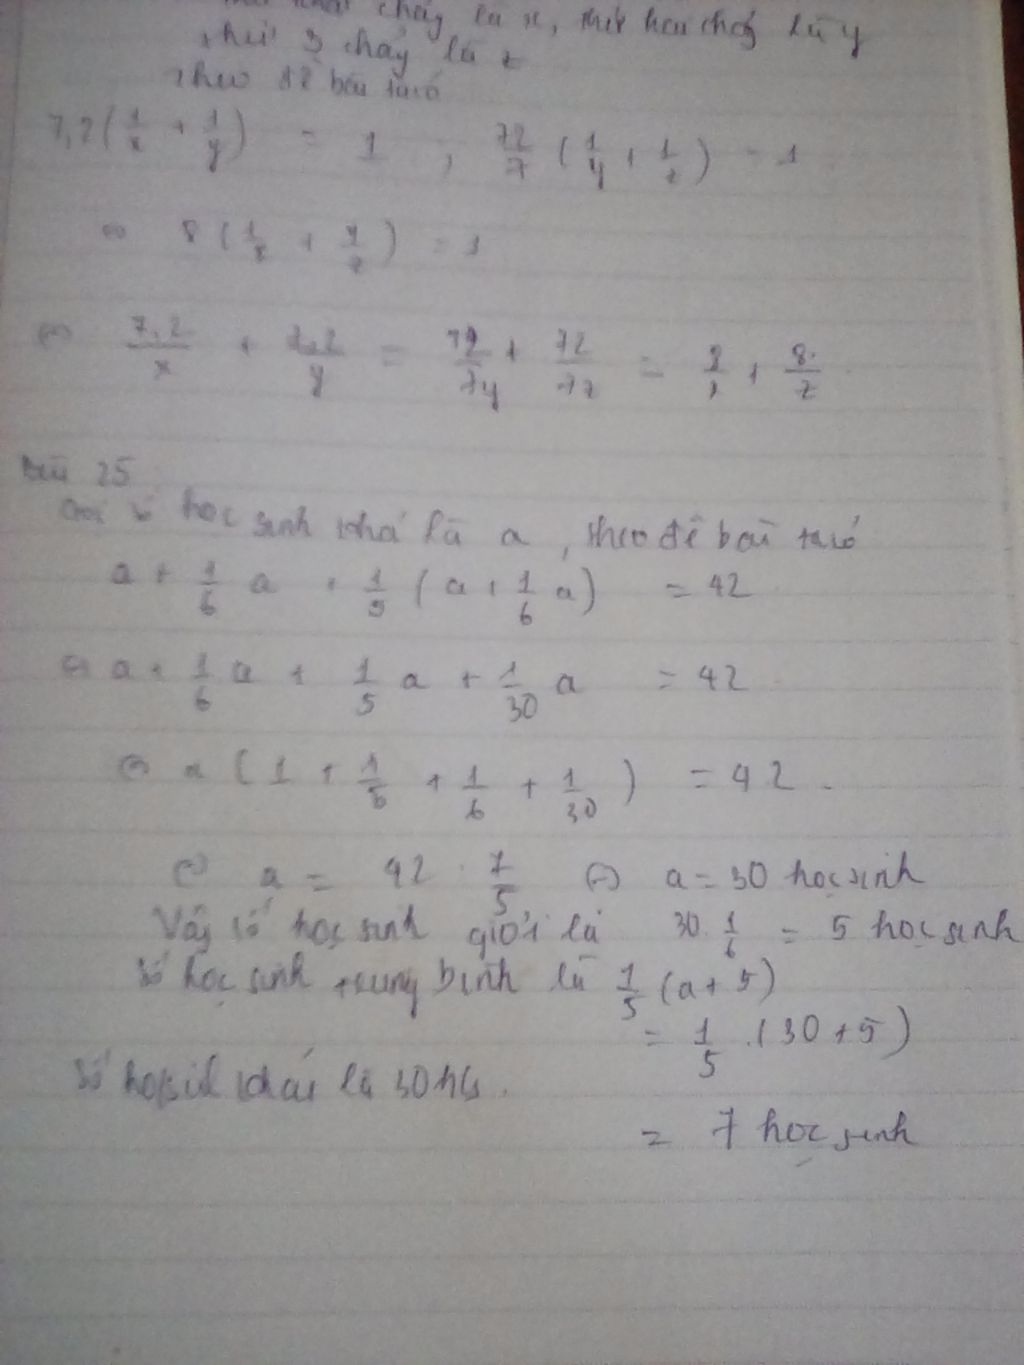 chảy là x, thứ hai chảy là y
thứ 3 chảy là z
Theo đề bài ta có
7,2(1/x + 1/y) = 1 ; 72/7 (1/y + 1/z) = 1
⇔ 8(1/x + 1/z) = 1
⇔ 7,2/x + 7,2/y = 72/7y + 72/7z = 8/x + 8/z
Bài 25
Gọi số học sinh khá là a, theo đề bài ta có
a + 1/6 a + 1/5 (a + 1/6 a) = 42
⇔ a + 1/6 a + 1/5 a + 1/30 a = 42
⇔ a (1 + 1/5 + 1/6 + 1/30) = 42.
⇔ a = 42 . 7/5 ⇔ a = 30 học sinh
Vậy số học sinh giỏi là 30. 1/6 = 5 học sinh
Số học sinh trung bình là 1/5 (a + 5)
= 1/5 . (30 + 5)
Số học sinh khá là 30 hs.
= 7 học sinh